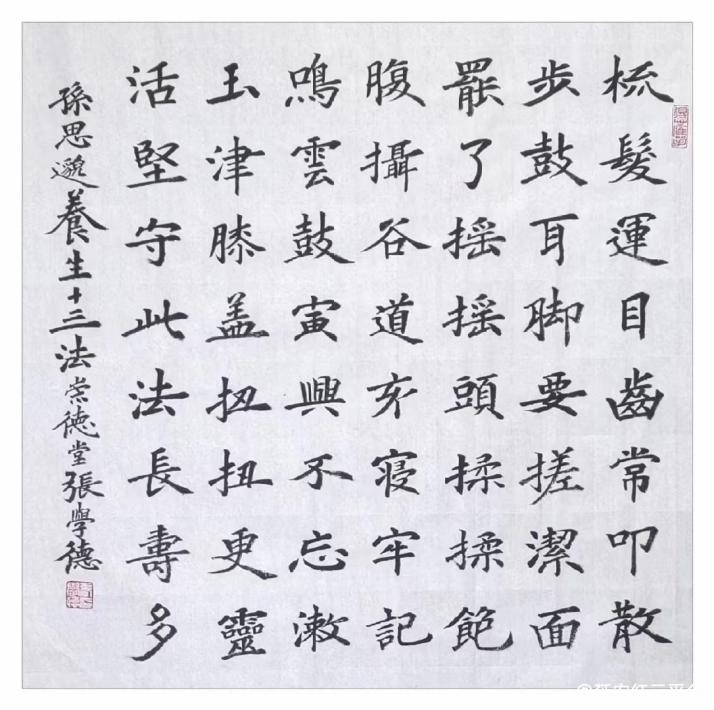 梳髮運目齒常叩散
步鼓耳脚要搓潔面
罷了摇摇頭揉揉飽
腹攝谷道亥寢牢記
鳴雲鼓寅興不忘漱
玉津膝盖扭扭更靈
活堅守此法長壽多
孫思邈養生十三法崇德堂張學德